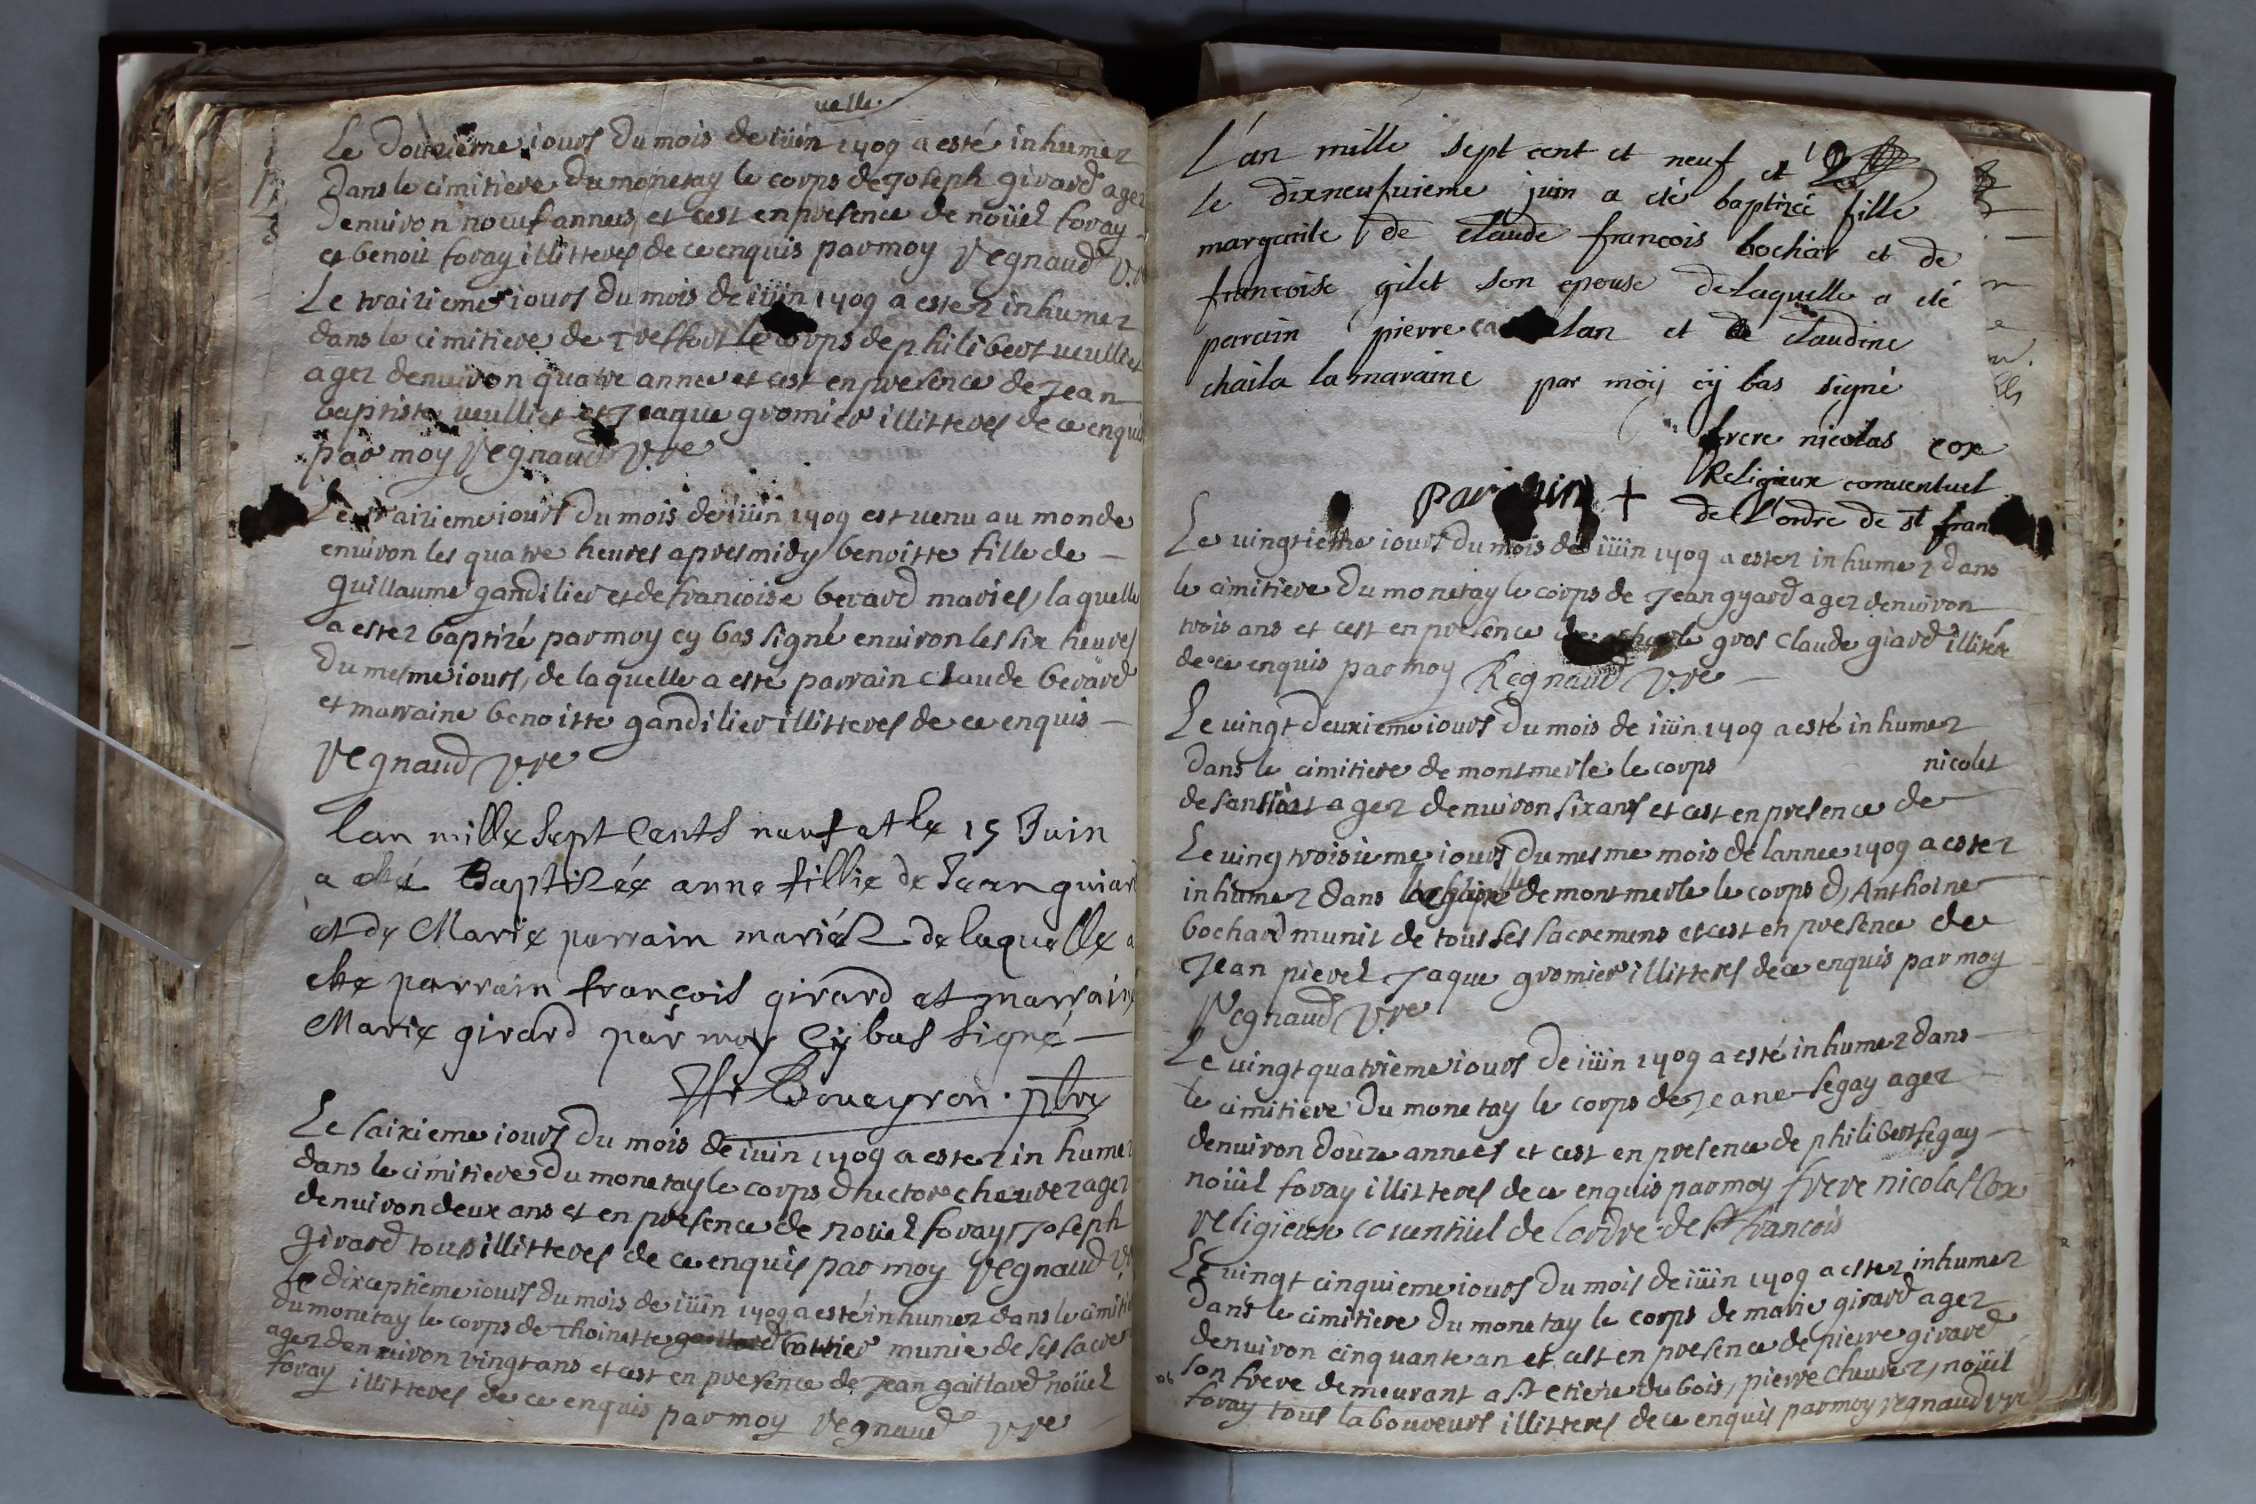 uelle
Le douzieme iours du mois de iüin 1709 a esté inhumez
dans le cimitiere du monetay le corps de Joseph girard agez
denuiron noeuf annees et cest en presence de noüel foray
et benoit foray illitteres de ce enquis par moy Regnaud v.re
Le traizieme iours du mois de iüin 1709 a estez inhumez
dans le cimitiere de Treffort le corps de philibert uulliet
agez denuiron quatre annee et cest en presence de Jean
baptiste uulliet et Jeaque gromier illitteres de ce enquis
par moy Regnaud v.re
Le traizieme iours du mois de iüin 1709 est uenu au monde
enuiron les quatre heures apres midy benoitte fille de
guillaume gandilier et de francoise berard maries, laquelle
a estez baptizé par moy cy bas signé enuiron les six heures
du mesme iours, de laquelle a esté parrain claude berard
et marraine benoitte gandilier illitteres de ce enquis
Regnaud v.re
lan mille Sept Cents neuf et le 15 Juin
a esté Baptizée anne fillie de Jean guiard
et de Marie parrain mariéz de laquelle a
este parrain françois girard et marraine
Marie girard par moy Cy bas signé
Boueyron . pbre
Le saizieme iours du mois de iuin 1709 a estez inhumez
dans le cimitiere du monetay le corps dhector cheurez agez
denuiron deux ans et en presence de nouel foray Joseph
girard tous illitteres de ce enquis par moy Regnaud v.re
Le dixceptieme iours du mois de iüin 1709 a esté inhumez dans le cimitiere
du monetay le corps de Thoinette gaillard munie de ses sacre
agez denuiron vingt ans et cest en presence de Jean gaillard noüel
foray illitteres de ce enquis par moy Regnaud v.re
L'an mille sept cent et neuf et
le dixneufuieme juin a été baptizée fille
margarite de claude francois bochar et de
francoise gilet son epouse de laquelle a été
parain pierre lan et claudine
chaila la maraine par moÿ cÿ bas signé
frere nicolas cox
Religieux conuentuel
de l'ordre de st fran
+
Le vingtieme iours du mois de iüin 1709 a estez inhumez dans
le cimitiere du monetay le corps de Jean gyard agez denuiron
trois ans et cest en presence de charle gros claude giard illiter
de ce enquis par moy Regnaud v.re
Le uingt deuxieme iours du mois de iüin 1709 a esté inhumez
dans le cimitiere de montmerle le corps nicolet
de sanssiat agez denuiron six ans et cest en presence de
Le uing troisieme iours du mesme mois de lannee 1709 a estez
inhumez dans de montmerle le corps d, Anthoine
bochard munit de tous ses sacremens et cest en presence de
Jean pievel Jaque gromier illitteres de ce enquis par moy
Regnaud v.re
Le uingt quatrieme iours de iüin 1709 a esté inhumez dans
le cimitiere du monetay le corps de Jeane segay agez
denuiron douze annees et cest en presence de philibert segay
noüel foray illitteres de ce enquis par moy frere nicolas Cox
religieux couentüel de lordre de st francois
Le uingt cinquieme iours du mois de iüin 1709 a estez inhumez
dans le cimitiere du monetay le corps de marie girard agez
denuiron cinquante an et cest en presence de pierre girard
son frere demeurant a st etiene du bois, pierre cheurez, noüel
foray tous laboureurs illitteres de ce enquis par moy regnaud v.re